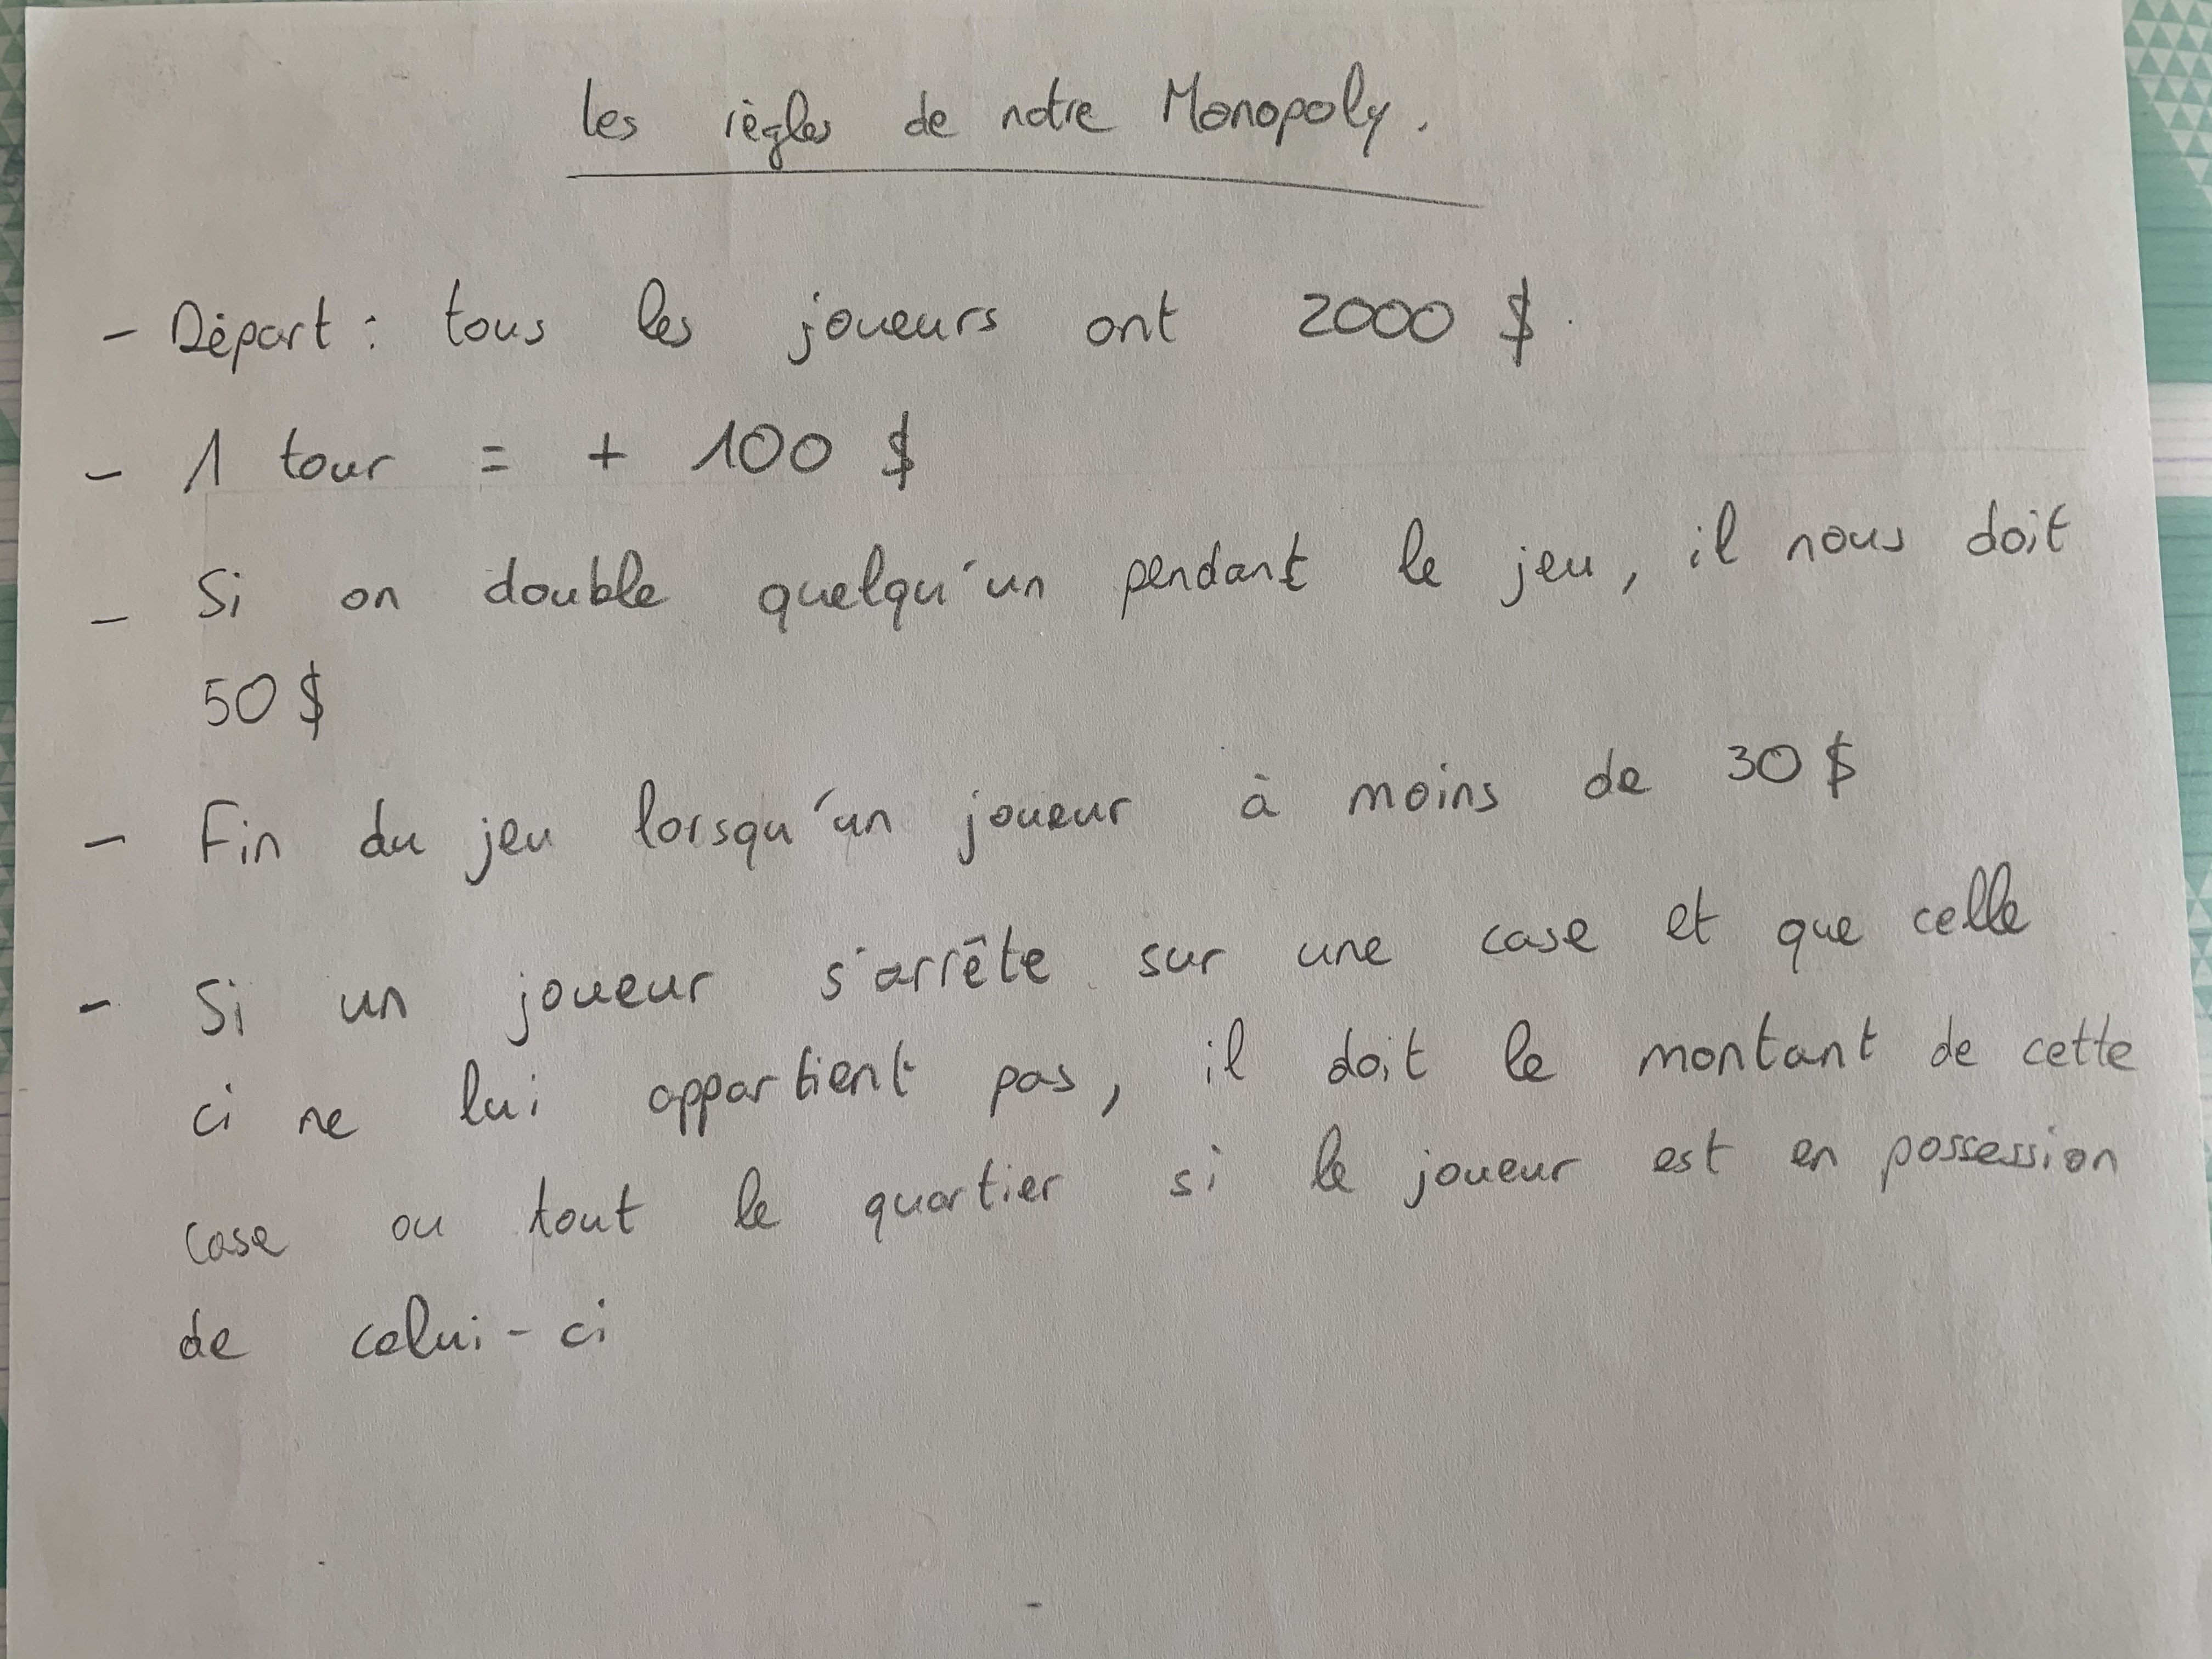 Les règles de notre Monopoly.
- Départ : tous les joueurs ont 2000 $.
- 1 tour = + 100 $
- Si on double quelqu'un pendant le jeu, il nous doit
50 $
- Fin du jeu lorsqu'un joueur à moins de 30 $
- Si un joueur s'arrête sur une case et que celle
ci ne lui appartient pas, il doit le montant de cette
case ou tout le quartier si le joueur est en possession
de celui-ci